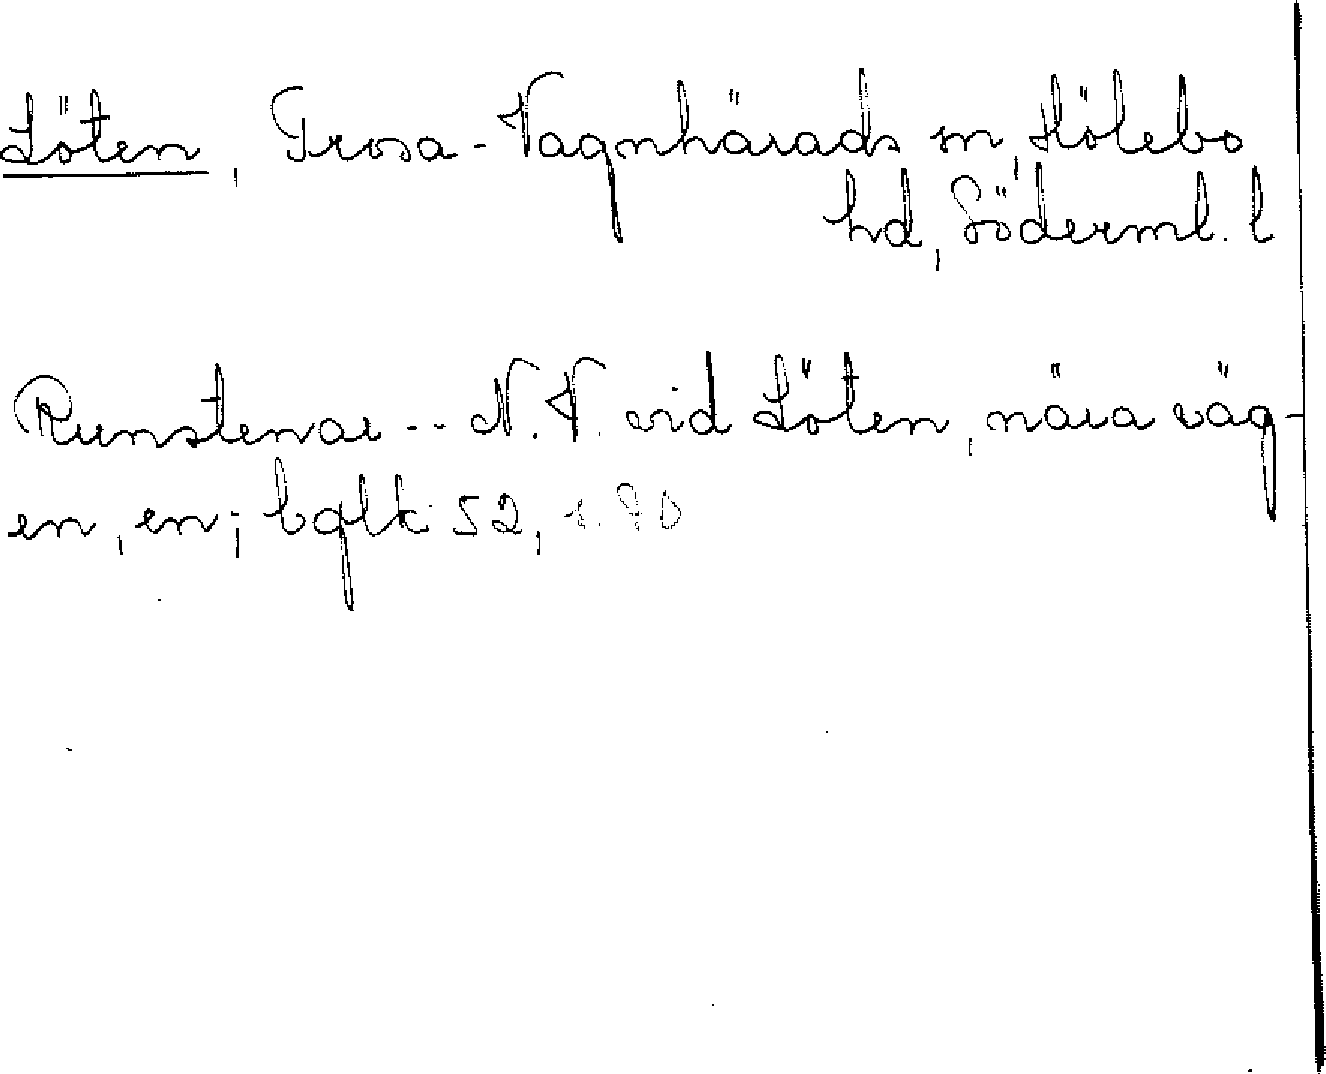 Löten, Trosa-Vagnhärads sn, Hölebo
hd, Söderml. l
Runstenar -- N.V. vid Löten, nära väg-
en, en; bqlk 52, s. 90